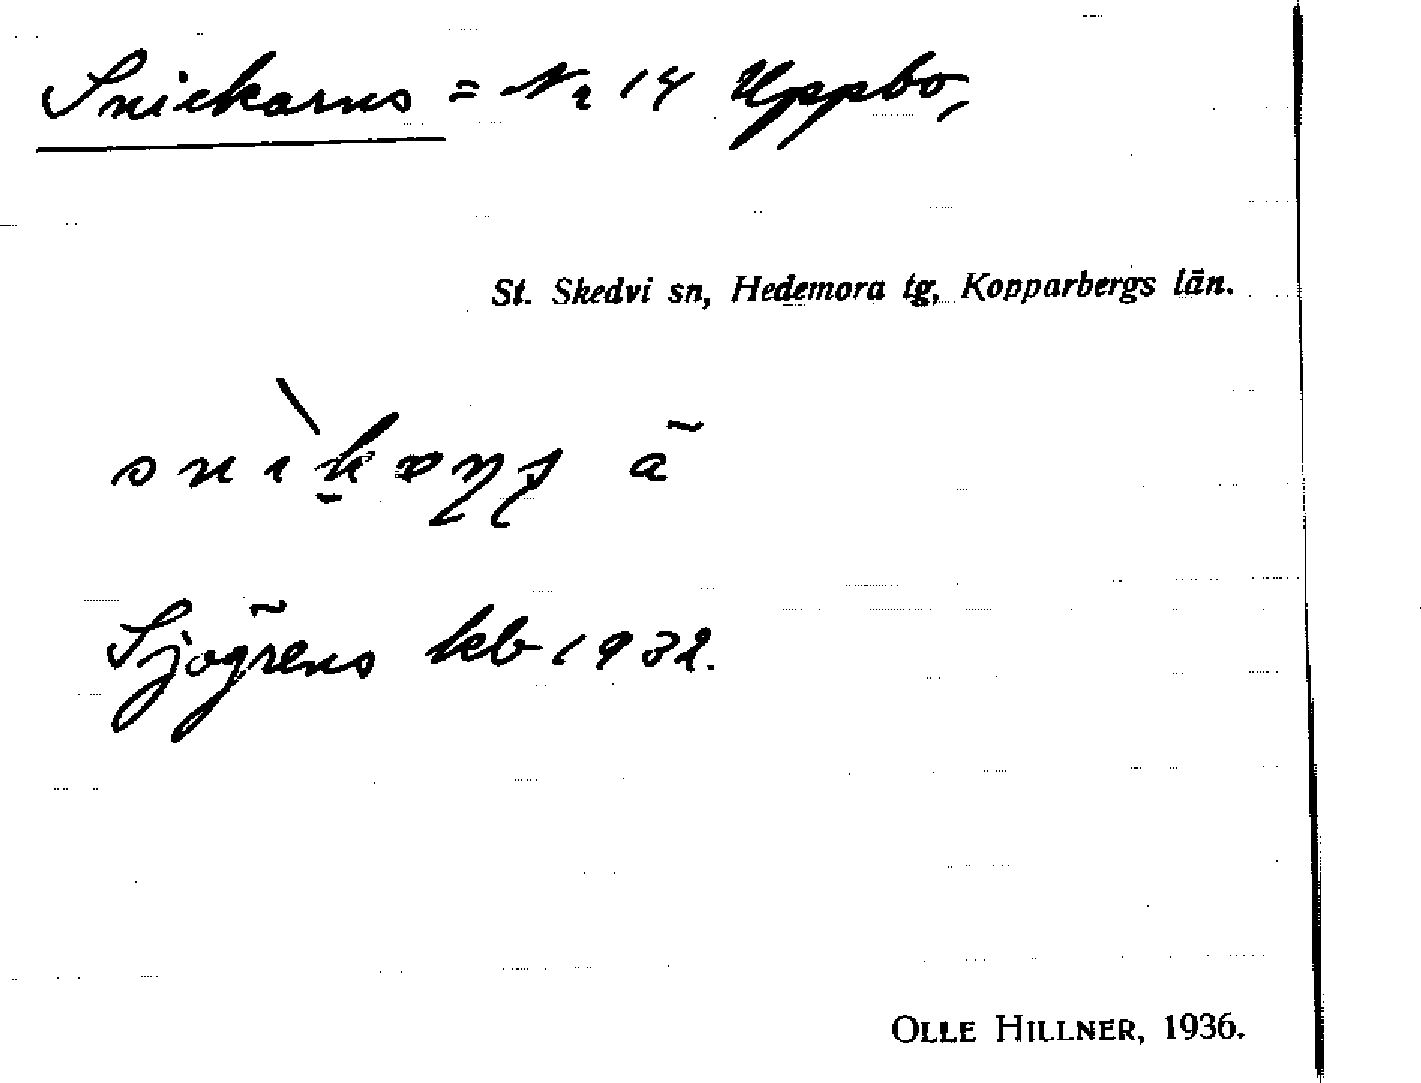 Snickarns = Nr 14 Uppbo,
St. Skedvi sn, Hedemora tg, Kopparbergs län.
ã
Sjögrens kb 1932.
OLLE HILLNER, 1936.